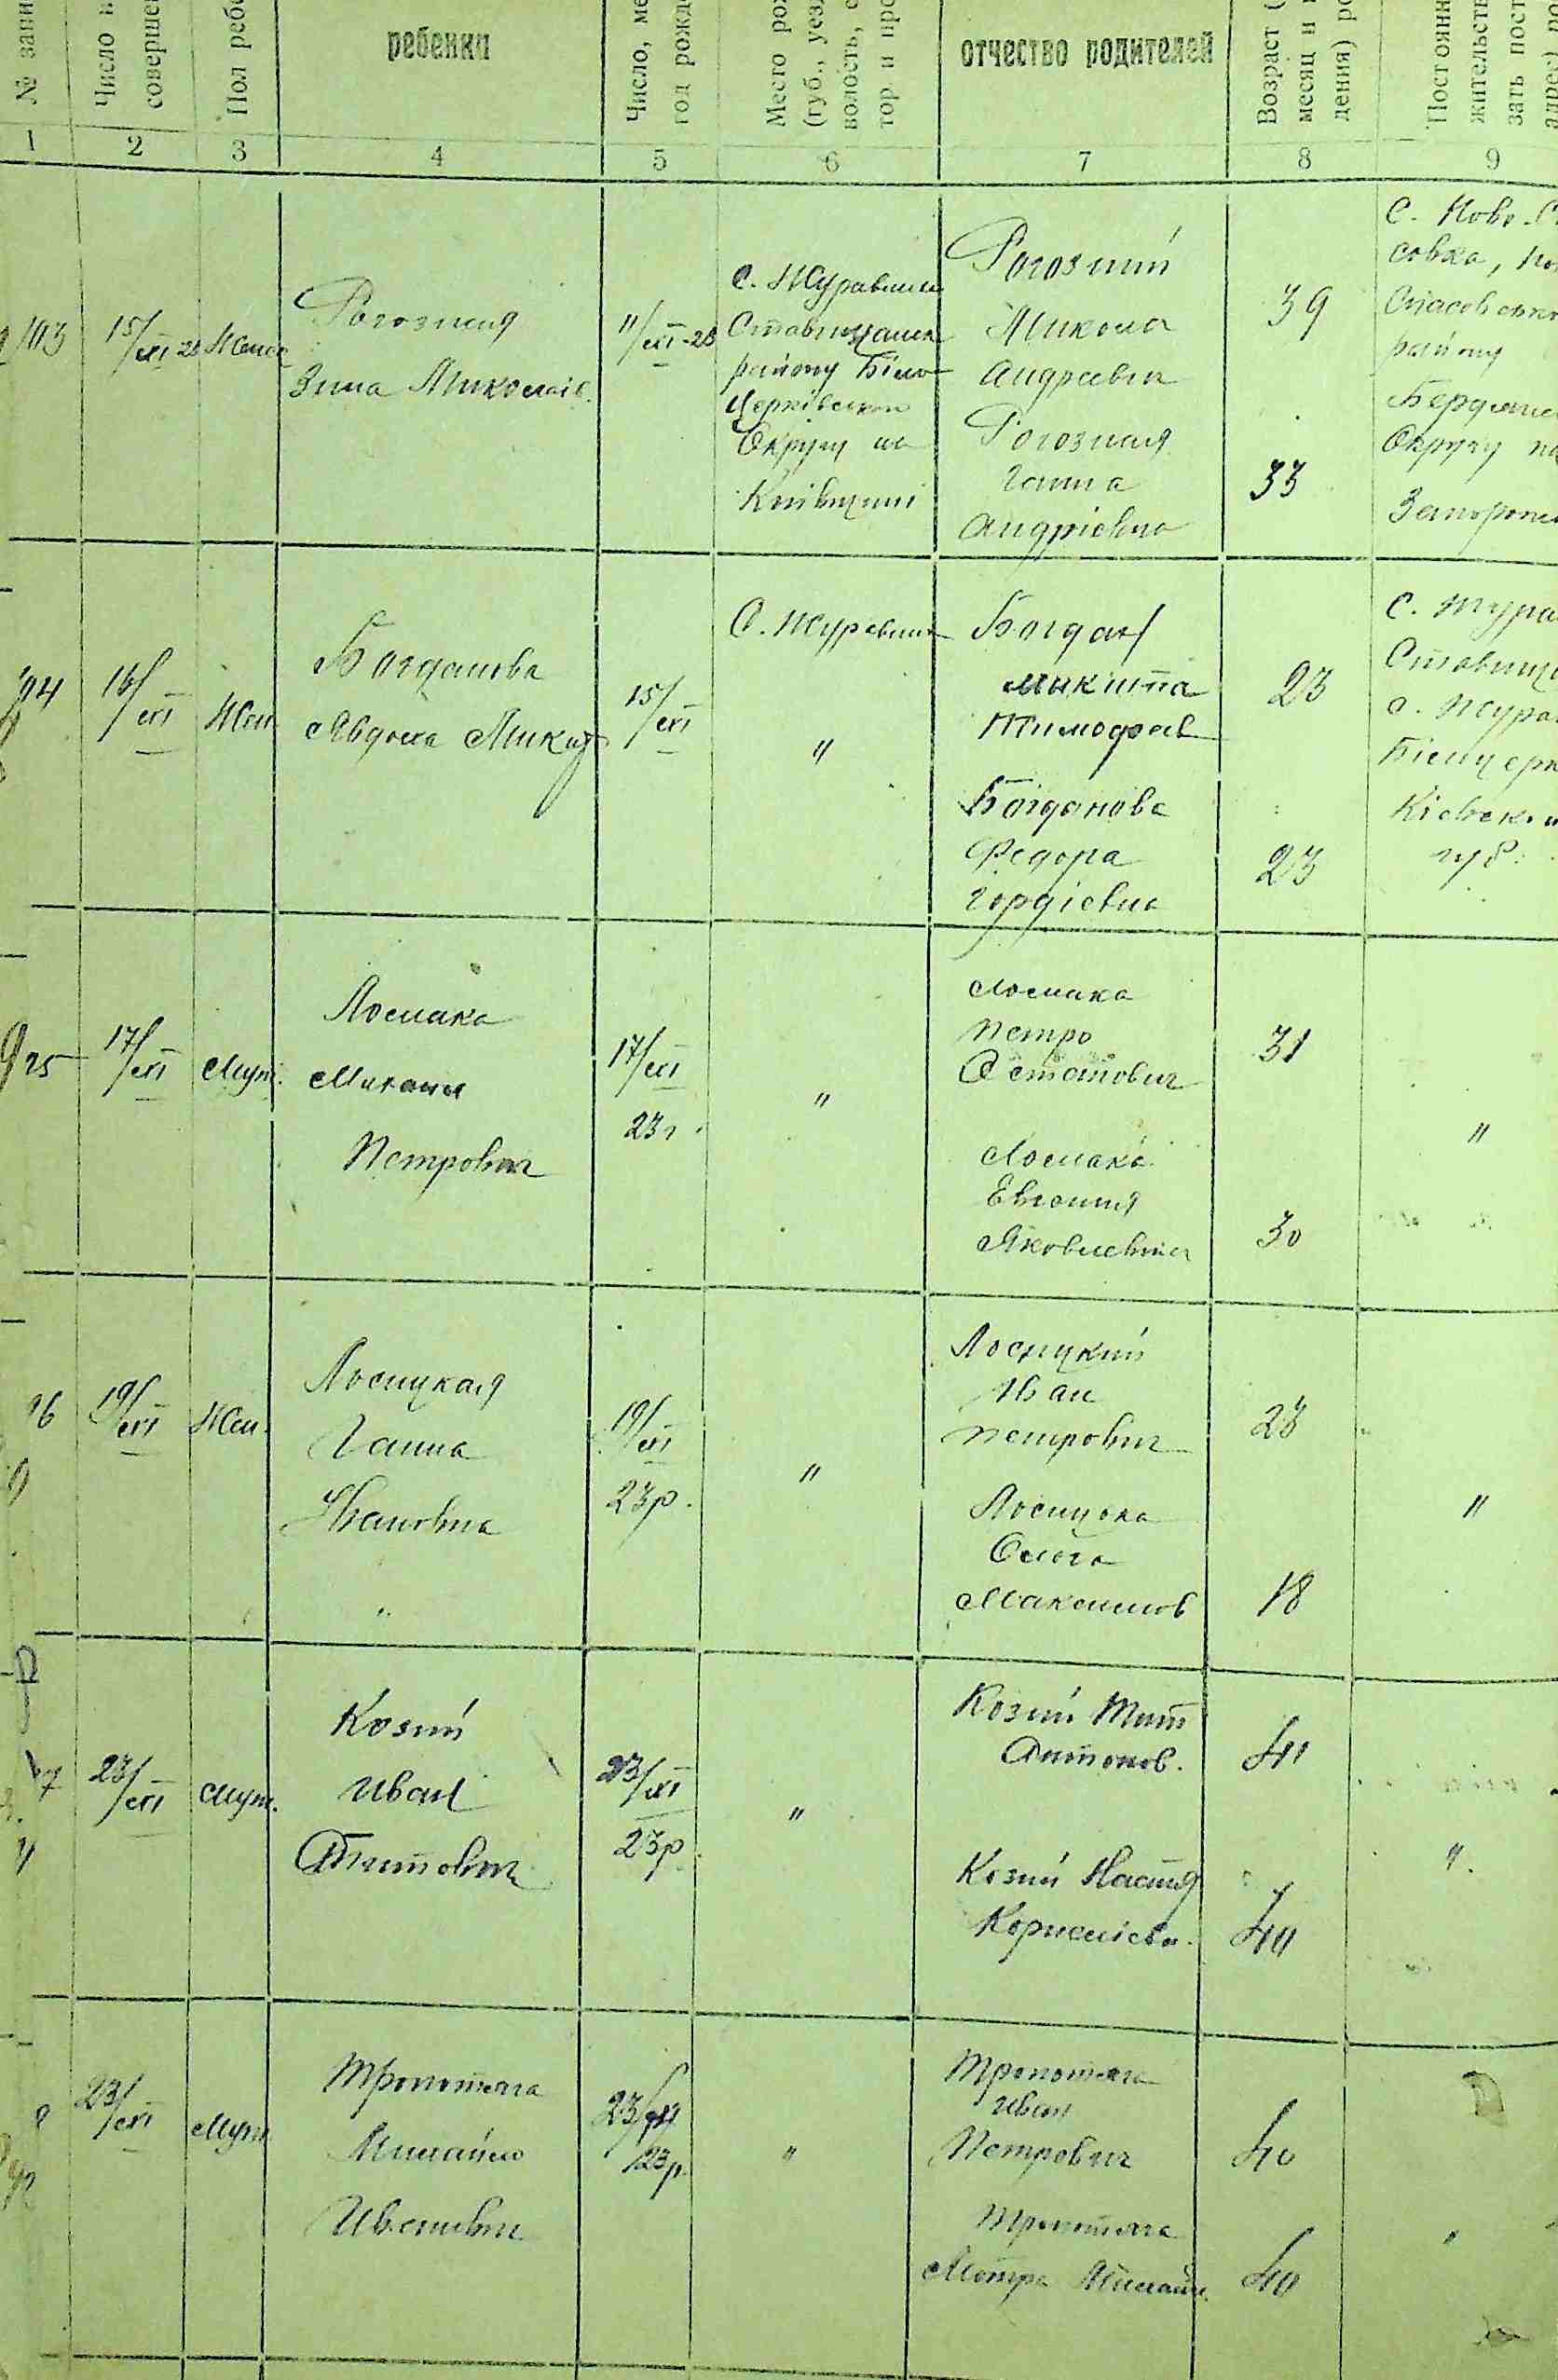 № запи
Число
соверше
Пол ребе
ребенка
Число, ме
год рожд
Место рож
(губ., уезд
волость, с
тор и пр
отчество родителей
Возраст (
месяц и
дения) ро
Постоянн
жительств
зать пост
адрес) ро
1 2 3 4 5 6 7 8 9
15/XI 23
Женск
Рогозная
Зина Миколаїв.
11/XI-23
С. Журавлиха
Ставищанск
району Біло-
Церківської
Округу на
Київщині
Рогозний
Микола
Андреевич
39
Рогозная
Ганна
Андріевна
33
С. Ново-С
совка, Но
Спасовско
району
Бердянс
Округу на
Запорож
94
16/XI
Жен
Богданова
Явдоха Микит
15/XI
С. Журавлиха
"
Богдан
Микита
Тимофеев
23
Богданова
Федора
Гордіевна
23
С. Жура
Ставища
с. Жура
Білцерк
Кіевск.
губ.
17/XI
Муж.
Лосмака
Петрович
17/XI
23 г.
"
Лосмака
Петро
Остапович
31
Лосмака
Евгения
Яковлевна
30
"
96
19/XI
Жен.
Лосицкая
Ганна
Ивановна
"
19/XI
23 р.
"
Лосицкий
Иван
Петрович
23
Лосицька
Ольга
Максимов
18
"
23/XI
Муж.
Козий
Иван
Титович
23/XI
23 р
"
Козий Тит
Антонов.
41
Козий Настя
Корнеліевн.
40
"
23/XI
Муж
Тропотяга
Михайло
Иванович
23/XI
23 р.
"
Тропотяга
Иван
Петрович
40
Тропотяга
Мотря Михайл.
40
"